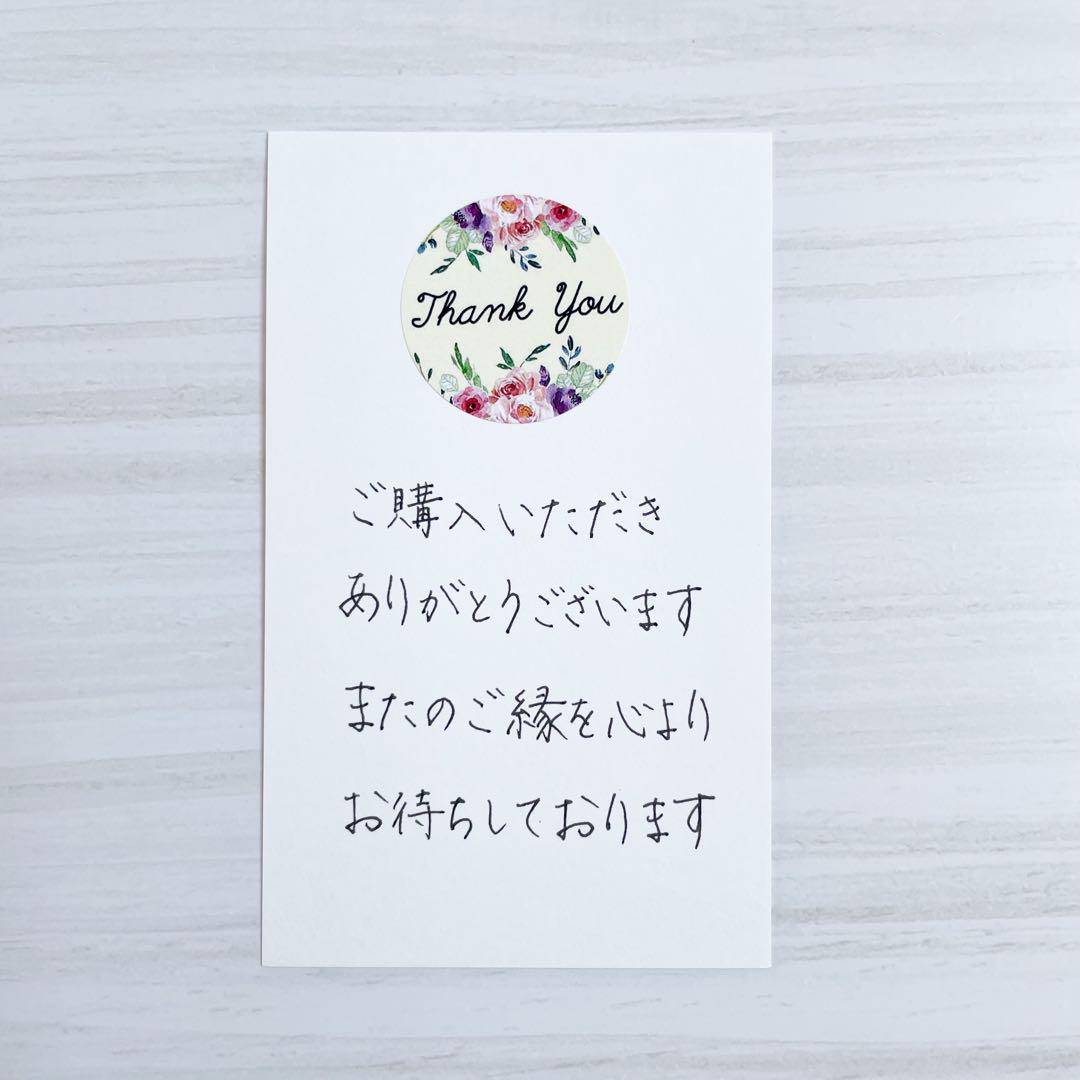 Thank You
ご購入いただき
ありがとうございます
またのご縁を心より
お待ちしております